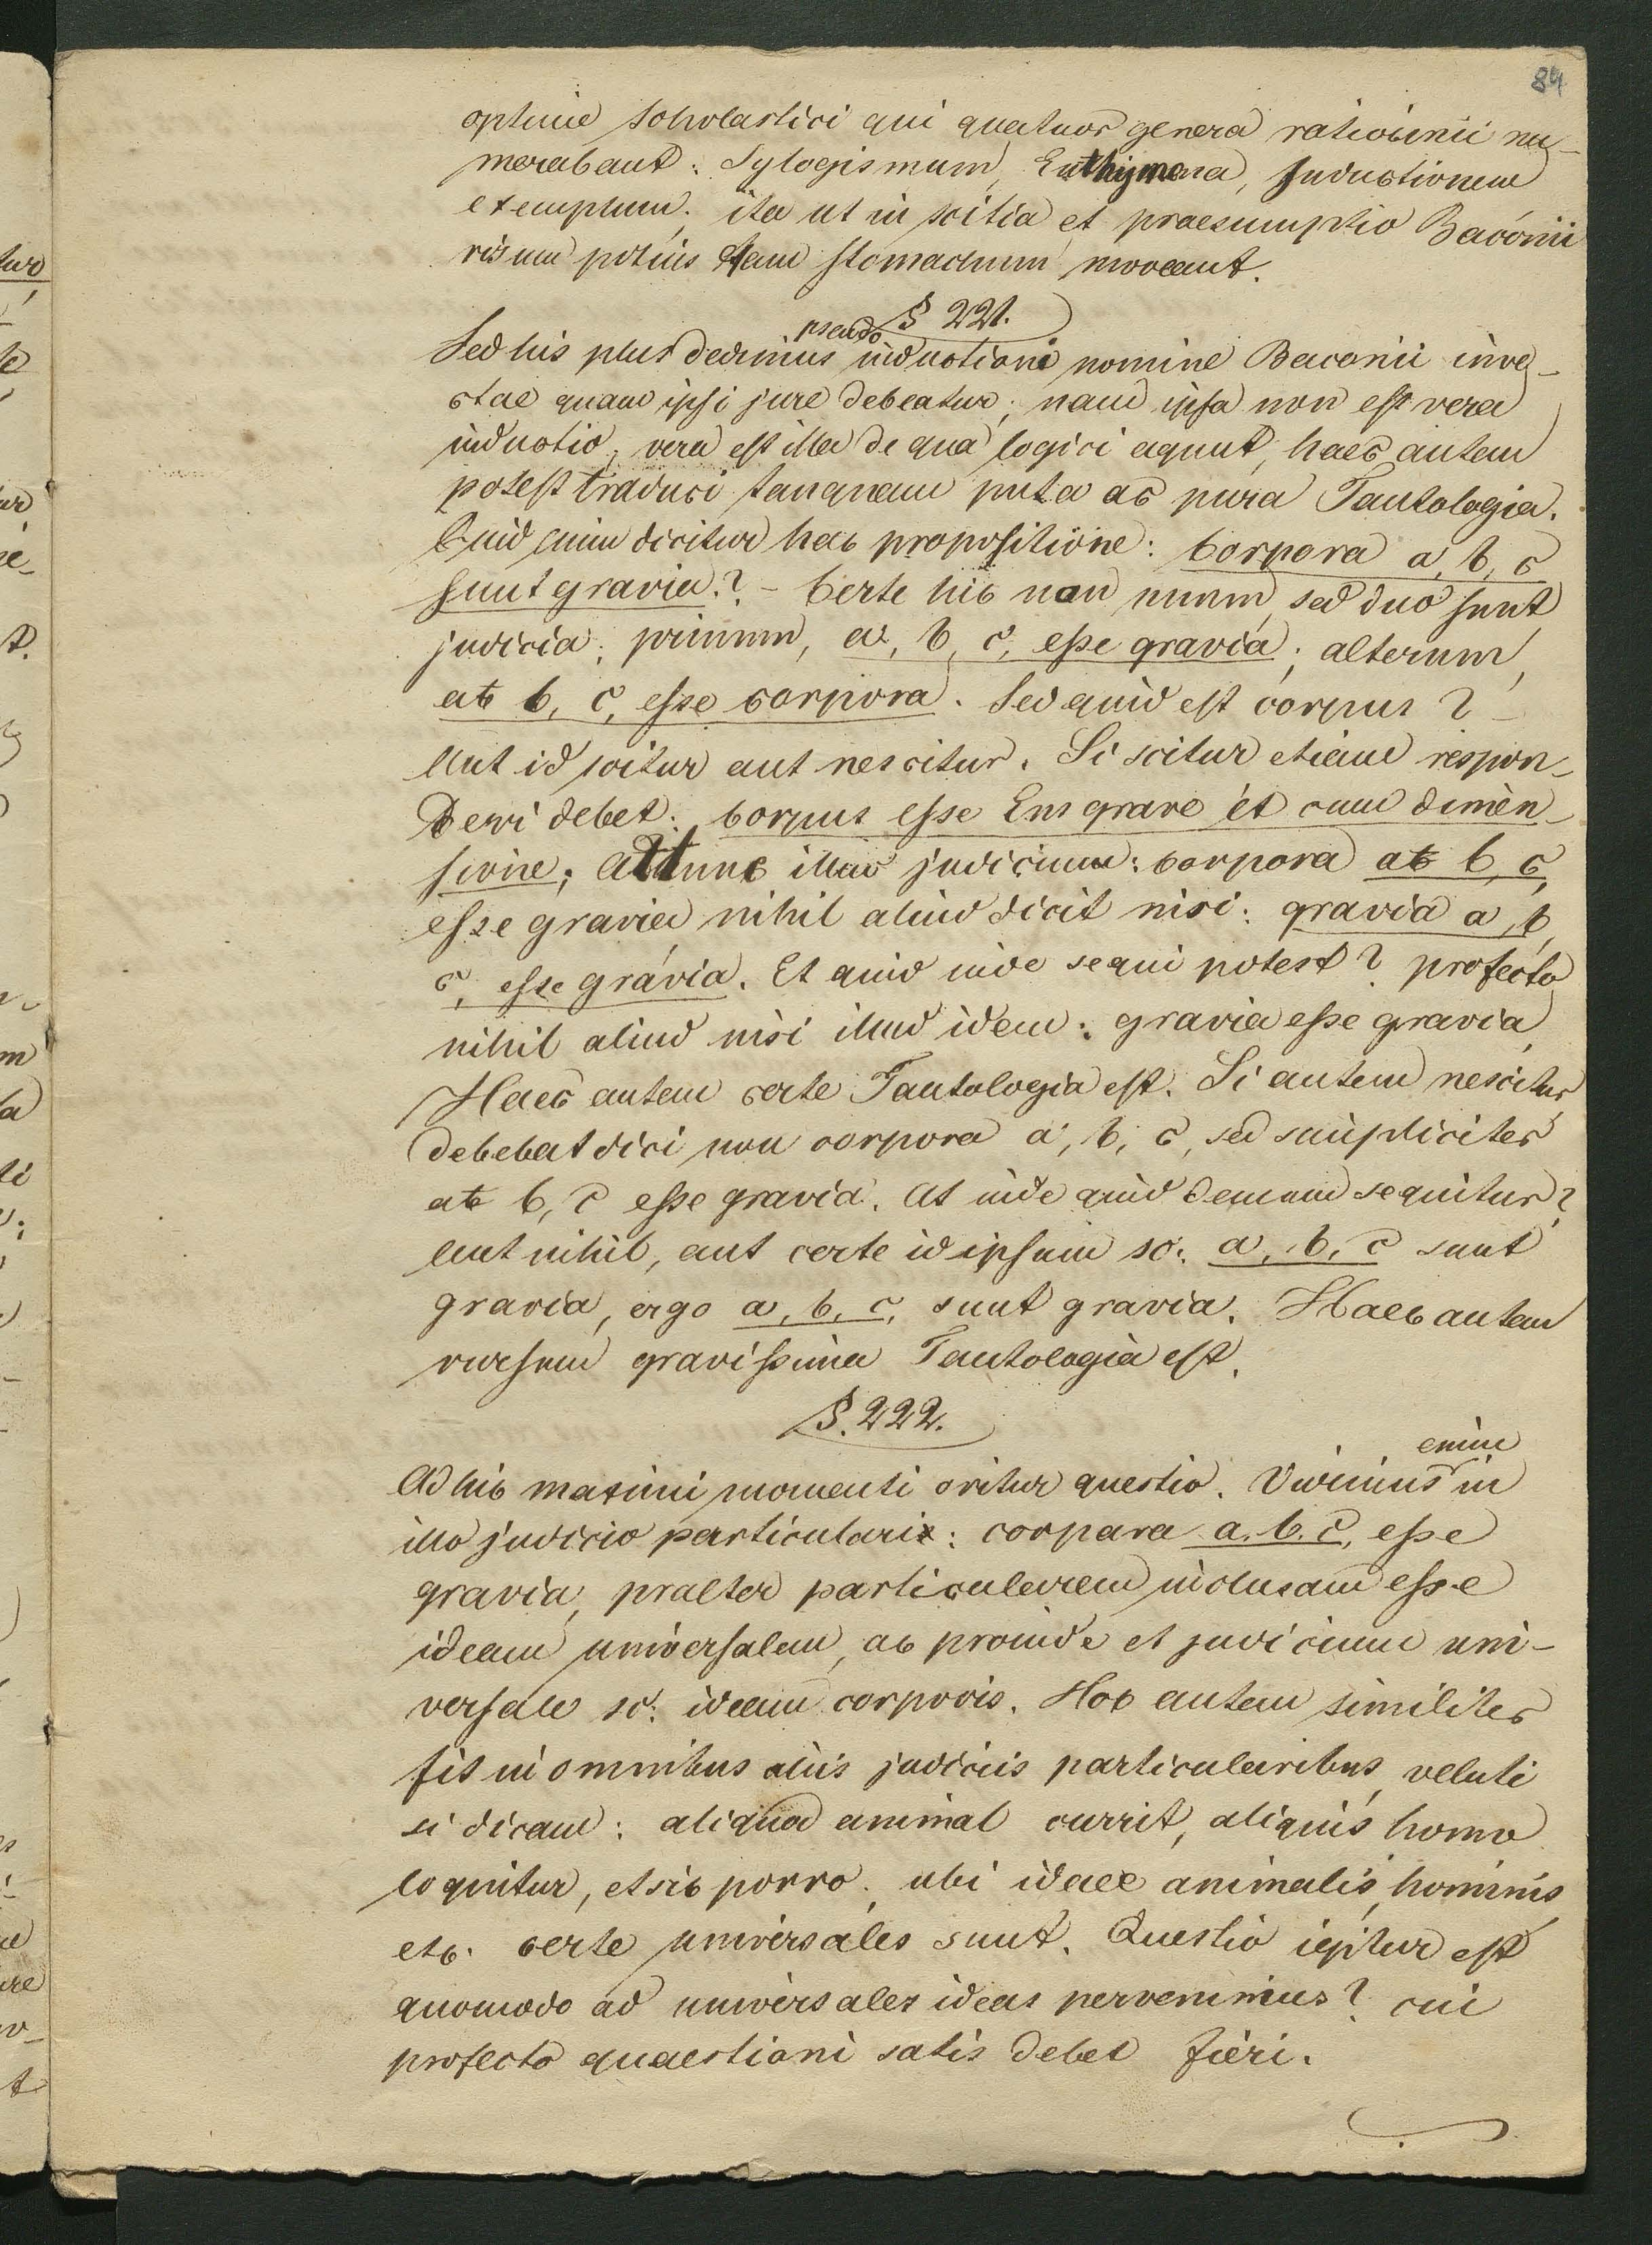 84
optime scholastici qui quatuor genera ratiocinii nu-
merabant: Sylogismum, Enthymema, Inductionem
exemplum; ita ut inscitia et praesumptio Baconii
risum potius quam stomachum moveant.
§ 221.
Sed his plus dedimus pseudo inductioni nomine Baconii inve-
ctae quam ipsi jure debeatur; nam ipsa non est vera
inductio; vera est illa de qua logici agunt, haec autem
potest traduci tanquam puta ac pura Tautologia.
Quid enim dicitur hac propositione: Corpora a, b, c
sunt gravia? - Certe hic non unum, sed duo sunt
judicia; primum, a, b, c, esse gravia; alterum,
a b, c, esse corpora. Sed quid est corpus? -
Aut id scitur aut nescitur. Si scitur etiam respon-
deri debet: Corpus esse Ens grave et cum dimen-
sione; at tunc illud judicium: Corpora a b, c,
esse gravia nihil aliud dicit nisi: gravia a, b,
c, esse gravia. Et quid inde sequi potest? profecto
nihil aliud nisi illud idem: gravia esse gravia,
Haec autem certe Tautologia est. Si autem nescitur,
debebat dici non corpora a, b, c, sed simpliciter
a b, c esse gravia. At inde quid demum sequitur?
aut nihil, aut certe id ipsum sc: a, b, c sunt
gravia, ergo a, b, c, sunt gravia. Haec autem
rursum gravissima Tautologia est.
§. 222.
Ad hic maximi momenti oritur questio. Vidimus enim in
illo judicio particulari: corpora a. b. c, esse
gravia, praeter particularem inclusam esse
ideam universalem, ac proinde et judicium uni-
versale sc: ideam corporis. Hoc autem similiter
fit in omnibus aliis judiciis particularibus, veluti
si dicam: aliquod animal currit, aliquis homo
loquitur, et sic porro; ubi ideae animalis, hominis,
etc. certe universales sunt. Questio igitur est
quomodo ad universales ideas pervenimus? cui
profecto quaestioni satis debet fieri.